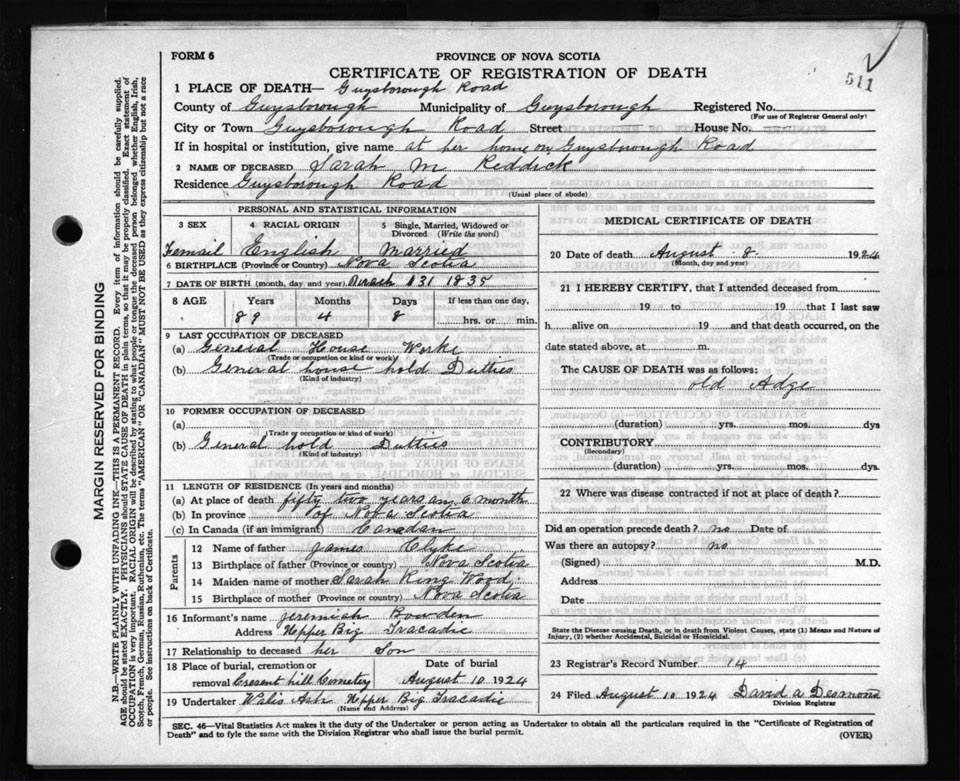 511
FORM 6
PROVINCE OF NOVA SCOTIA
CERTIFICATE OF REGISTRATION OF DEATH
1 PLACE OF DEATH— Guysborough Road
County of Guysborough Municipality of Guysborough Registered No.
(For use of Registrar General only)
City or Town Guysborough Road Street House No.
If in hospital or institution, give name at her home on Guysborough Road
2 NAME OF DECEASED Sarah M Reddick
Residence Guysborough Road
(Usual place of abode)
PERSONAL AND STATISTICAL INFORMATION
3 SEX 4 RACIAL ORIGIN 5 Single, Married, Widowed or Divorced (Write the word)
Femail English Married
6 BIRTHPLACE (Province or Country) Nova Scotia
7 DATE OF BIRTH (month, day and year) March 31 1835
8 AGE Years Months Days If less than one day,
89 4 8 hrs. or min.
9 LAST OCCUPATION OF DECEASED
(a) General House Worke
(Trade or occupation or kind or work)
(b) General house hold Dutties
(Kind of industry)
10 FORMER OCCUPATION OF DECEASED
(a)
(Trade or occupation or kind of work)
(b) General hold Dutties
(Kind of industry)
11 LENGTH OF RESIDENCE (In years and months)
(a) At place of death fifty two years an 6 month
(b) In province of Nova Scotia
(c) In Canada (if an immigrant) Canadan
Parents
12 Name of father James Clyke
13 Birthplace of father (Province or Country) Nova Scotia
14 Maiden name of mother Sarah King Wood
15 Birthplace of mother (Province or country) Nova Scotia
16 Informant's name Jeremiah Bowden
Address Hepper Big Tracadie
17 Relationship to deceased her Son
18 Place of burial, cremation or Date of burial
removal Cresent hill Cemetery August 10 1924
19 Undertaker Walis Ash Hepper Big Tracadie
(Name and Address)
MEDICAL CERTIFICATE OF DEATH
20 Date of death August 8 1924
(Month, day and year)
21 I HEREBY CERTIFY, that I attended deceased from
19 to 19 that I last saw
h alive on 19 and that death occurred, on the
date stated above, at m.
The CAUSE OF DEATH was as follows:
old Adge
(duration) yrs. mos. dys
CONTRIBUTORY
(Secondary)
(duration) yrs. mos. dys.
22 Where was disease contracted if not at place of death?
Did an operation precede death? no Date of
Was there an autopsy? no
(Signed) M.D.
Address
Date
State the Disease causing Death, or in death from Violent Causes, state (1) Means and Nature of
Injury, (2) whether Accidental, Suicidal or Homicidal.
23 Registrar's Record Number 14
24 Filed August 10 1924 David a Desmond
Division Registrar
SEC. 46—Vital Statistics Act makes it the duty of the Undertaker or person acting as Undertaker to obtain all the particulars required in the "Certificate of Registration of
Death" and to fyle the same with the Division Registrar who shall issue the burial permit.
(OVER)
MARGIN RESERVED FOR BINDING
N.B.—WRITE PLAINLY WITH UNFADING INK—THIS IS A PERMANENT RECORD. Every item of information should be carefully supplied.
AGE should be stated EXACTLY. PHYSICIANS should STATE CAUSE OF DEATH in plain terms, so that it may be properly classified. Exact statement of
OCCUPATION is very important. RACIAL ORIGIN will be described by stating to what people or tongue the deceased person belonged whether English, Irish,
Scotch, French, German, Russian, Ruthenian, etc. The terms "AMERICAN" OR "CANADIAN" MUST NOT BE USED as they express citizenship but not a race
or people. See instructions on back of Certificate.